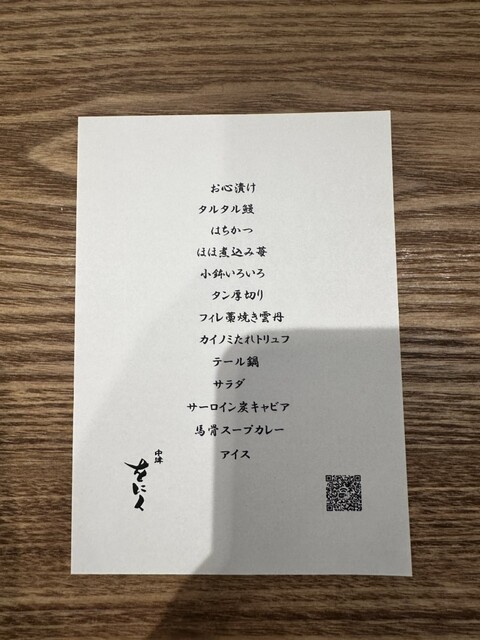 お心漬け
タルタル鰻
はちかつ
ほほ煮込み苺
小鉢いろいろ
タン厚切り
フィレ藁焼き雲丹
カイノミたれトリュフ
テール鍋
サラダ
サーロイン炭キャビア
馬骨スープカレー
アイス
をにく